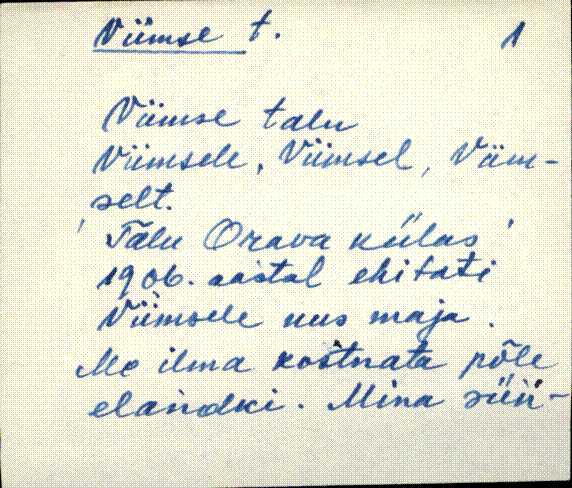 Viimse t. 1
Viimse talu
Viimsele, Viimsel, Viim-
selt.
'Talu Orava külas'
1906. aastal ehitati
Viimsele uus maja.
Me ilma kostnata põle
elandki. Mina siin-